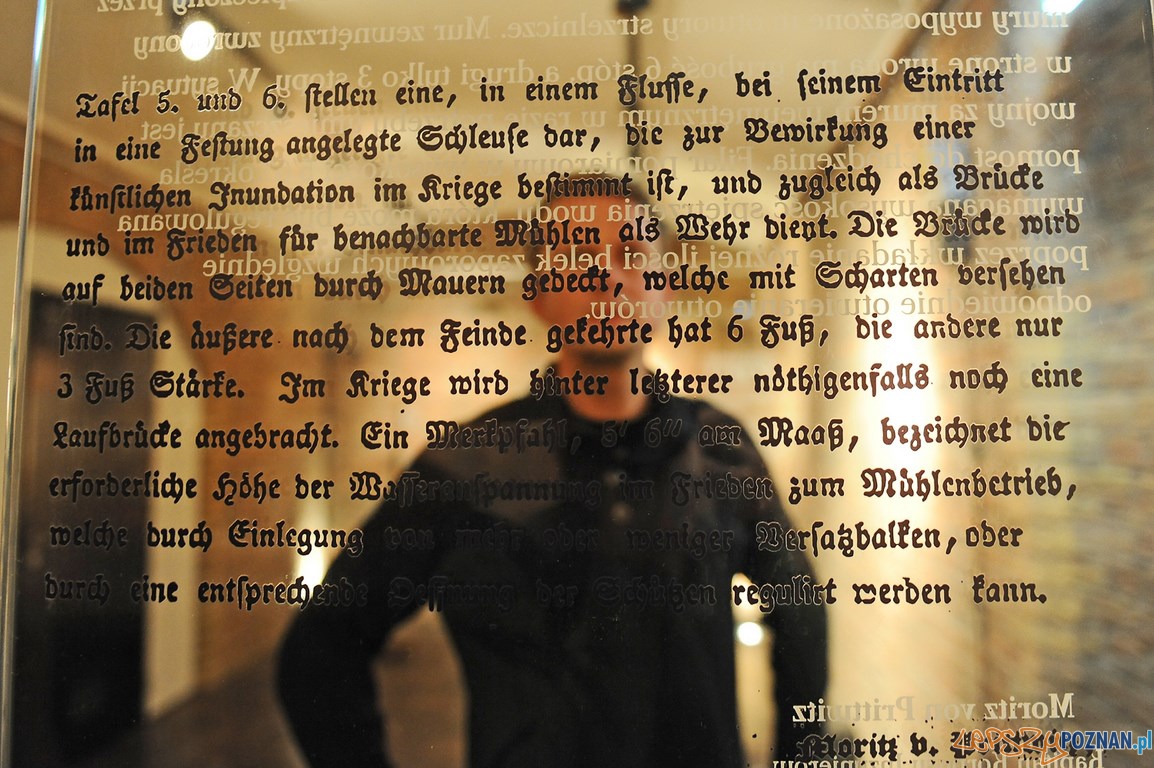 Tafel 5. und 6. stellen eine, in einem Flusse, bei seinem Eintritt
in eine Festung angelegte Schleuse dar, die zur Bewirkung einer
künstlichen Inundation im Kriege bestimmt ist, und zugleich als Brücke
und im Frieden für benachbarte Mühlen als Wehr dient. Die Brücke wird
auf beiden Seiten durch Mauern gedeckt, welche mit Scharten versehen
sind. Die äußere nach dem Feinde gekehrte hat 6 Fuß, die andere nur
3 Fuß Stärke. Im Kriege wird hinter letzterer nöthigenfalls noch eine
Laufbrücke angebracht. Ein Merkpfahl, 5' 6" am Maaß, bezeichnet die
erforderliche Höhe der Wasseranspannung im Frieden zum Mühlenbetrieb,
welche durch Einlegung von mehr oder weniger Versatzbalken, oder
durch eine entsprechende Oeffnung der Schützen regulirt werden kann.
mury wyposażone w otwory strzelnicze. Mur zewnętrzny zwrócony
w stronę wroga ma grubość 6 stóp, a drugi tylko 3 stopy. W sytuacji
wojny za murem wewnętrznym w razie
pomost do chodzenia. Filar pomiarowy określa
wymaganą wysokość spiętrzenia wody, która może być regulowana
poprzez wkładanie różnej ilości belek zaporowych względnie
odpowiednie otwieranie otworów.
Moritz von Prittwitz
Moritz v. Prittwitz
LEPSZYPOZNAN.pl